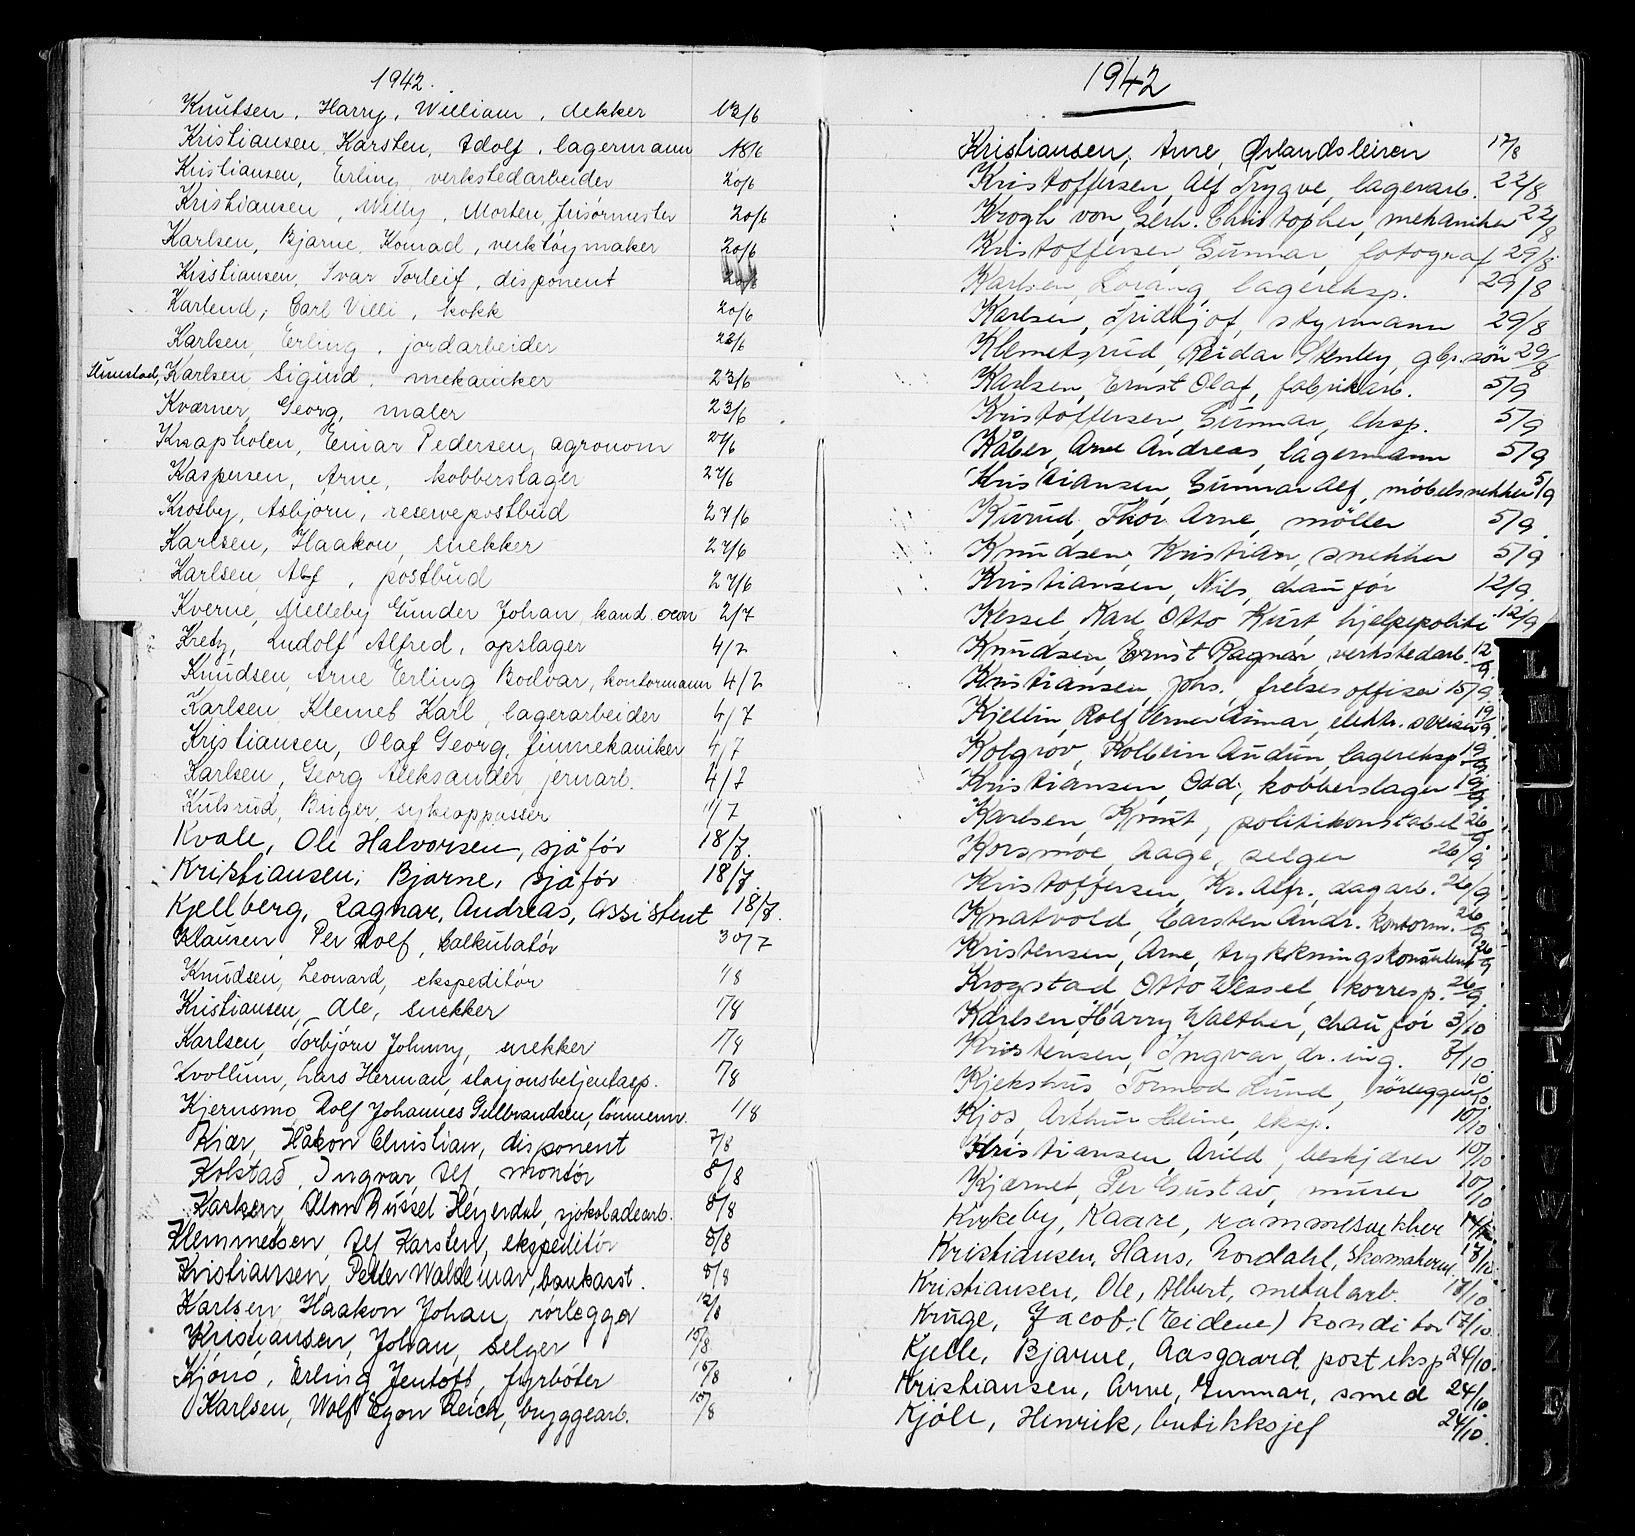 1942.
Knutsen, Harry, William, dekker 13/6
Kristiansen, Karsten, Adolf, lagermann 18/6
Kristiansen, Erling, verkstedarbeider 20/6
Kristiansen, Willy, Morten, frisørmester 20/6
Karlsen, Bjarne, Konrad, verktøymaker 20/6
Kristiansen, Ivar Torleif, disponent 20/6
Karlend, Carl Villi, kokk 20/6
Karlsen, Erling, jordarbeider 23/6
Karlsen Sigurd, mekaniker 23/6
Kværner, Georg, maler 23/6
Knapholen, Einar Pedersen, agronom 27/6
Kaspersen, Arne, kobberslager 27/6
Krosby, Asbjørn, reservepostbud 27/6
Karlsen, Haakon, snekker 27/6
Karlsen, Alf, postbud 27/6
Kverne, Melleby Gunder Johan, kand. oecon 2/7
Kretz, Ludolf Alfred, opslager 4/7
Knudsen, Arne Erling Bodvar, kontormann 4/7
Karlsen Klemet Karl, lagerarbeider 4/7
Kristiansen, Olaf Georg, finmekaniker 4/7
Karlsen, Georg Aleksander, jernarb. 4/7
Kulsrud, Birger, sykeoppasser 11/7
Kvale, Ole Halvorsen, sjåfør 18/7.
Kristiansen, Bjarne, sjåfør 18/7.
Kjellberg, Ragnar, Andreas, assistent 18/7.
Klausen, Per Rolf, kalkulatør 30/7
Knudsen, Leonard, ekspeditør 1/8
Kristiansen, Ole, snekker 1/8
Karlsen, Torbjørn Johnny, snekker 1/8
Kvollum, Lars Herman, stasjonsbetjentasp. 1/8
Kjernsmo Rolf Johannes Gulbrandsen, 1/8
Kjær, Håkon Christian, disponent 7/8
Kolstad, Ingvar, Alf, montør 8/8
Karlsen, Alan Russel Heyerdal, sjokoladearb. 8/8
Klemmetsen, Alf Karsten, ekspeditør 8/8
Kristiansen, Petter Waldemar, bankasst. 8/8
Karlsen, Haakon Johan, rørlegger 12/8
Kristiansen, Johan, selger 15/8
Kjønø, Erling Jentoft, fyrbøter 15/8
Karlsen, Wolf Egon Reich, bryggearb. 15/8
1942
Kristiansen, Arne, Ørlandsleiren 17/8
Kristoffersen, Alf Trygve, lagerarb. 22/8
Krogh von, Gerh. Christopher, mekaniker 22/8
Kristoffersen, Gunnar, fotograf 29/8
Karlsen, Lorang, lagereksp. 29/8
Karlsen, Fridtjof, styrmann 29/8
Klemetsrud, Reidar Stenley, gbr.søn 29/8
Karlsen, Ernst Olaf, fabrikarb. 5/9
Kristoffersen, Gunnar, eksp. 5/9
Kåber, Arne Andreas, lagermann 5/9
Kristiansen, Gunnar Alf, møbelsnekker 5/9
Kurud, Thor Arne, møller 5/9.
Knudsen, Kristian, snekker 5/9
Kristiansen, Nils, chauför 12/9.
Kessel, Karl Otto Kurt, hjelpepoliti 12/9
Knudsen, Ernst Ragnar, verkstedarb. 12/9.
Kristiansen, Johs., frelsesoffiser 15/9
Kjellin, Rolf Verner Einar, elektr. sveiser 19/9.
Kolgrov, Kolbein Audun, lagereksp. 19/9
Kristiansen, Odd, kobberslager 19/9.
Karlsen, Knut, politikonstabel 26/9.
Korsmoe, Aage, selger 26/9
Kristoffersen, Kr. Alfr., dagarb. 26/9
Knatvold, Carsten Andr. kontorm. 26/9
Kristensen, Arne, trykkningskonsulent 26/9
Krogstad, Otto Wessel, korresp. 26/9.
Karlsen, Harry Walther, chauför 3/10
Kristensen, Ingvar, dr. ing. 3/10.
Kjekshus Tormod Lund, rörlegger 10/10.
Kjos, Arthur Heine, eksp. 10/10
Kristiansen, Arild, beskjærer 10/10
Kjærnet, Per Gustav, murer 10/10
Kirkeby, Kaare, rammesnekker
Kristiansen, Hans, Nordahl, skomakerm. 17/10.
Kristiansen, Ole, Albert, metalarb. 17/10.
Kruge, Jacob, (Eidene) konditor 17/10.
Kjelle, Bjarne, Aasgaard, posteksp 24/10.
Kristiansen, Arne, Gunnar, smed 24/10.
Kjöle, Henrik, butikksjef 24/10.
L
M
N
O
P
R
S
T
U
V
W